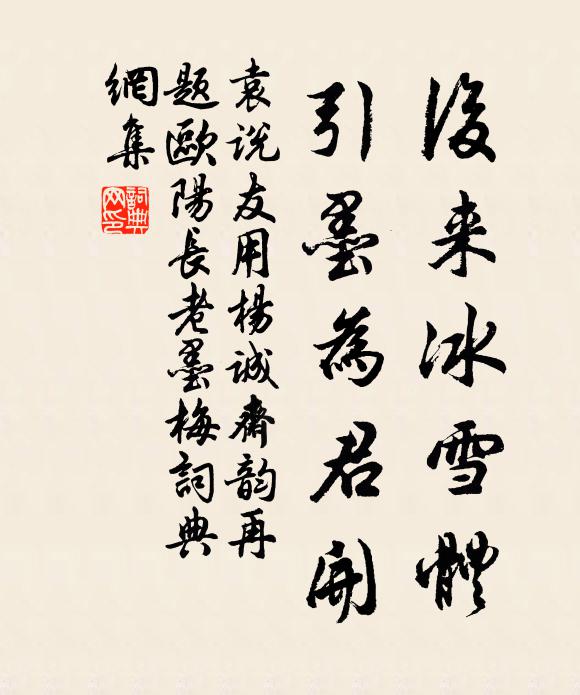 後来冰雪體
引墨為君開
袁说友用楊诚齋韵再
题歐陽長老墨梅詞典
網集
詞典
网印